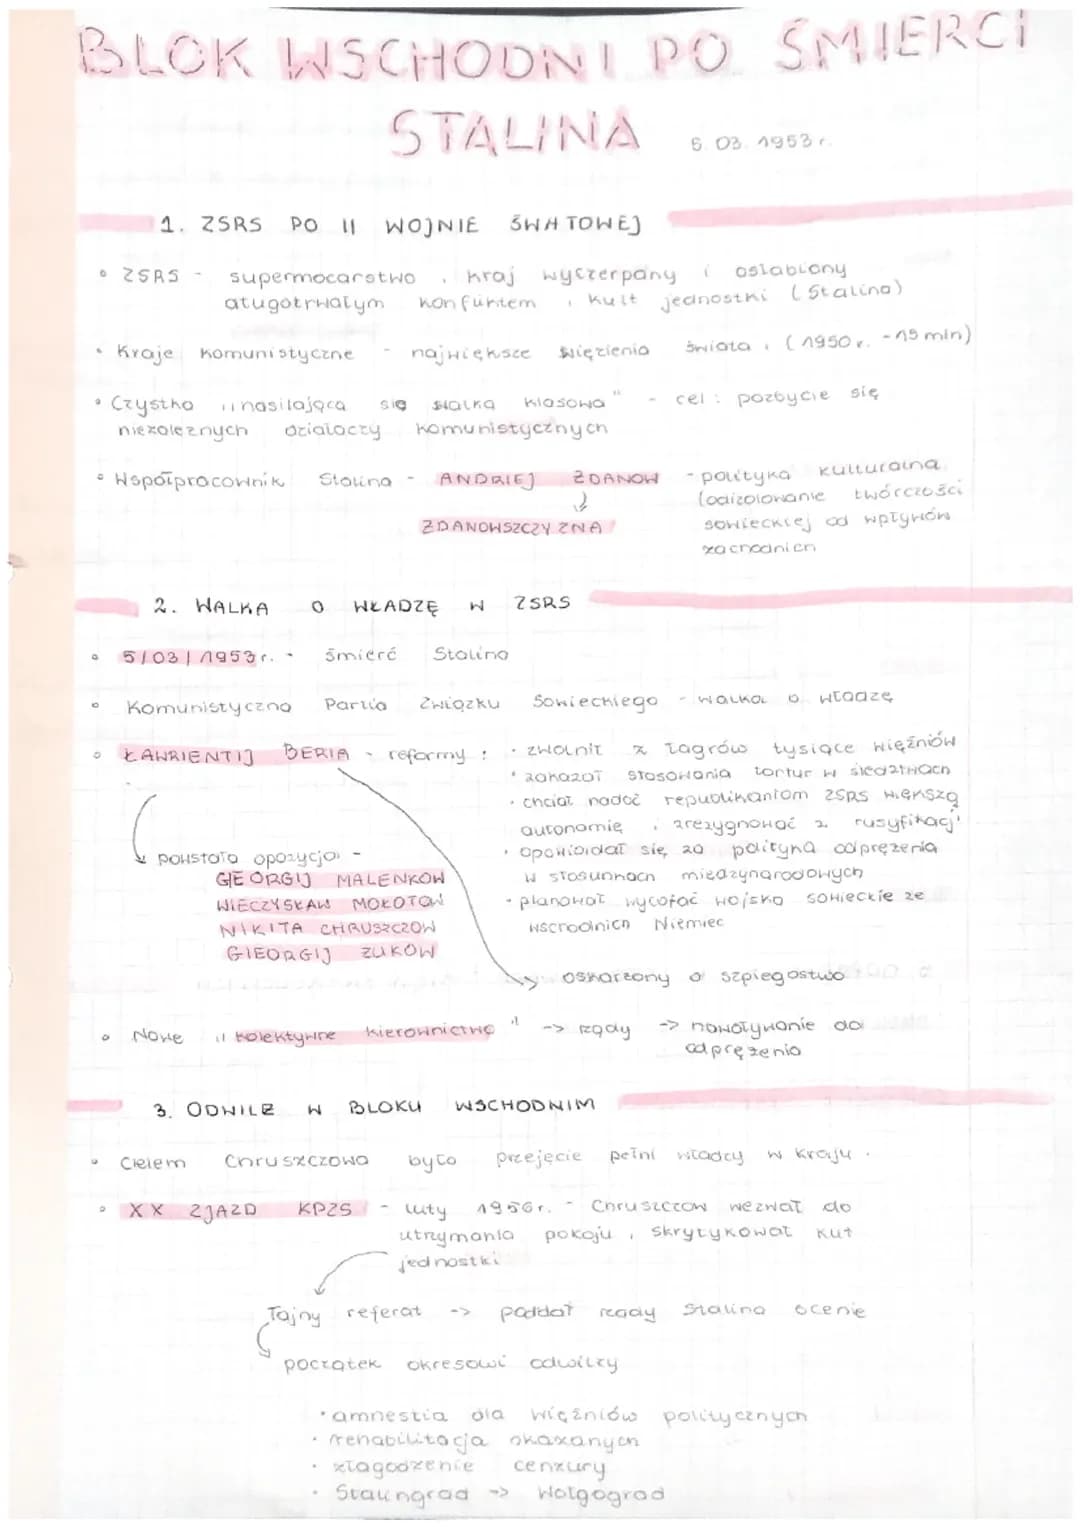 BLOK WSCHODNI PO ŚMIERCI
STALINA 5.03.1953r.
1. ZSRS PO II WOJNIE ŚWIATOWEJ
• ZSRS - supermocarstwo, kraj wyczerpany i osłabiony
długotrwałym konfliktem, kult jednostki (Stalina)
• Kraje komunistyczne - największe więzienia świata, (1950r. - 15 mln)
• Czystka „nasilająca się walka klasowa" - cel: pozbycie się
niezależnych działaczy komunistycznych
• Współpracownik Stalina - ANDRIEJ ŻDANOW - polityka kulturalna
(odizolowanie twórczości
ŻDANOWSZCZYZNA sowieckiej od wpływów
zachodnich
2. WALKA O WŁADZĘ W ZSRS
• 5/03/1953r. - śmierć Stalina
• Komunistyczna Partia Związku Sowieckiego - walka o władzę
• ŁAWRIENTIJ BERIA - reformy: • zwolnił z łagrów tysiące więźniów
• zakazał stosowania tortur w śledztwach
• chciał nadać republikantom ZSRS większą
autonomię, zrezygnować z rusyfikacji
• opowiadał się za polityką odprężenia
w stosunkach międzynarodowych
• planował wycofać wojsko sowieckie ze
wschodnich Niemiec
powstała opozycja -
GIEORGIJ MALENKOW
WIECZYSŁAW MOŁOTOW
NIKITA CHRUSZCZOW
GIEORGIJ ŻUKOW
oskarżony o szpiegostwo
• Nowe „kolektywne kierownictwo" -> rządy -> nawoływanie do
odprężenia
3. ODWILŻ W BLOKU WSCHODNIM
• Celem Chruszczowa było przejęcie pełni władzy w kraju.
• XX ZJAZD KPZS - luty 1956r. - Chruszczow wezwał do
utrzymania pokoju, skrytykował kut
jednostki
Tajny referat -> poddał rządy Stalina ocenie
początek okresowi odwilży
• amnestia dla więźniów politycznych
• rehabilitacja skazanych
• złagodzenie cenzury
• Stalingrad -> Wołgograd